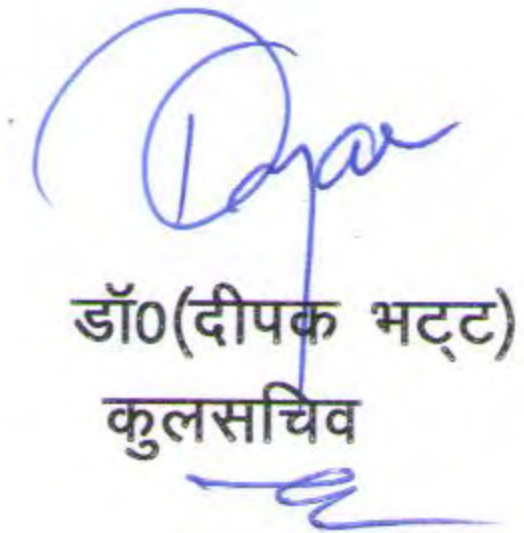 डॉ0(दीपक भट्ट)
कुलसचिव